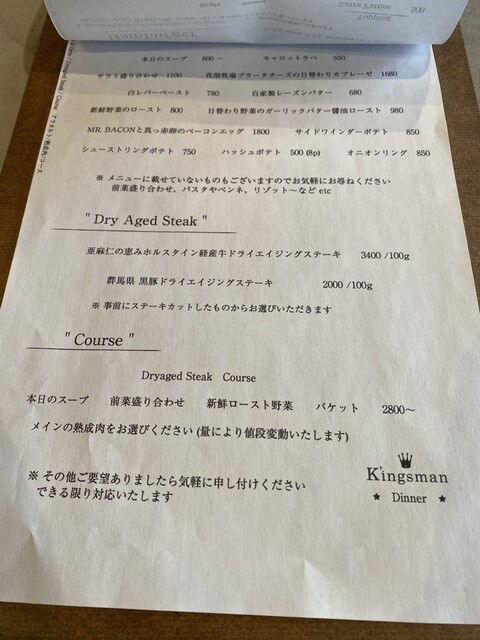 本日のスープ 600～ キャロットラペ 550
サラミ盛り合わせ 1100 花畑牧場ブラータチーズの日替わりカプレーゼ 1680
白レバーペースト 780 自家製レーズンバター 680
新鮮野菜のロースト 800 日替わり野菜のガーリックバター醤油ロースト 980
MR. BACONと真っ赤卵のベーコンエッグ 1800 サイドワインダーポテト 850
シューストリングポテト 750 ハッシュポテト 500 (8p) オニオンリング 850
※ メニューに載せていないものもございますのでお気軽にお尋ねください
前菜盛り合わせ、パスタやペンネ、リゾット～など etc
" Dry Aged Steak "
亜麻仁の恵みホルスタイン経産牛ドライエイジングステーキ 3400 /100g
群馬県 黒豚ドライエイジングステーキ 2000 /100g
※ 事前にステーキカットしたものからお選びいただきます
" Course "
Dryaged Steak Course
本日のスープ 前菜盛り合わせ 新鮮ロースト野菜 バケット 2800～
メインの熟成肉をお選びください (量により値段変動いたします)
※ その他ご要望ありましたら気軽に申し付けください
できる限り対応いたします
Kingsman
★ Dinner ★